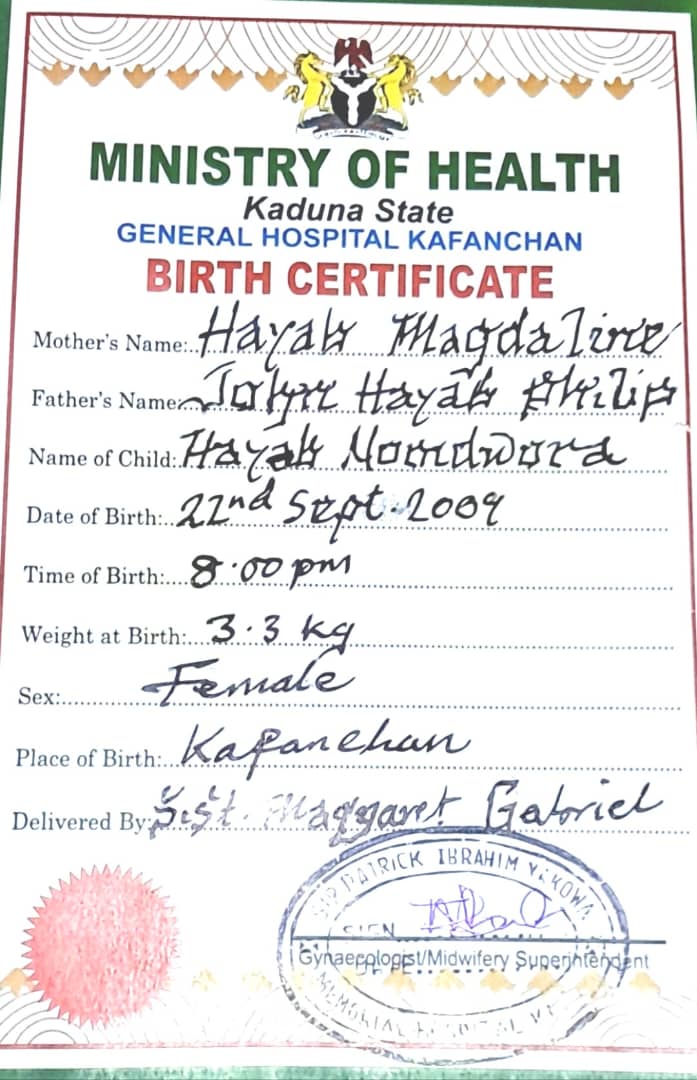 MINISTRY OF HEALTH
Kaduna State
GENERAL HOSPITAL KAFANCHAN
BIRTH CERTIFICATE
Mother's Name: Hayab Magdaline
Father's Name: John Hayab Philip
Name of Child: Hayab
Date of Birth: 22nd Sept. 2009
Time of Birth: 8.00 pm
Weight at Birth: 3.3 kg
Sex: Female
Place of Birth: Kafanchan
Delivered By: Sist. Maggaret Gabriel
SIR PATRICK IBRAHIM YAKOWA
SIGN
Gynaecologist/Midwifery Superintendent
MEMORIAL HOSPITAL